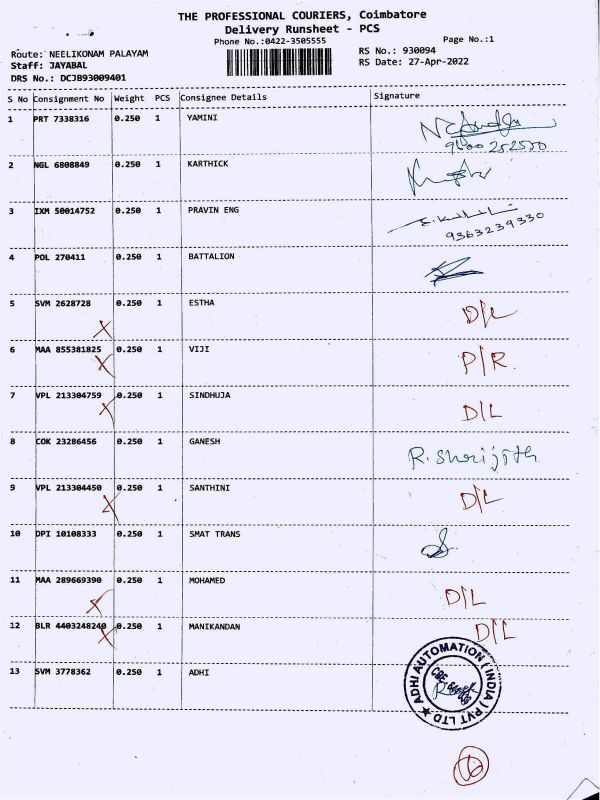 THE PROFESSIONAL COURIERS, Coimbatore
Delivery Runsheet - PCS
Phone No.:0422-3505555 Page No.:1
Route: NEELIKONAM PALAYAM RS No.: 930094
Staff: JAYABAL RS Date: 27-Apr-2022
DRS No.: DCJB93009401
S No Consignment No Weight PCS Consignee Details Signature
1 PRT 7338316 0.250 1 YAMINI
2 NGL 6808849 0.250 1 KARTHICK
3 IXM 50014752 0.250 1 PRAVIN ENG
9363239330
4 POL 270411 0.250 1 BATTALION
5 SVM 2628728 0.250 1 ESTHA D/L
X
6 MAA 855381825 0.250 1 VIJI P/R
X
7 VPL 213304759 0.250 1 SINDHUJA D/L
X
8 COK 23286456 0.250 1 GANESH R. Shrijith
9 VPL 213304450 0.250 1 SANTHINI D/L
X
10 DPI 10108333 0.250 1 SMAT TRANS
11 MAA 289669390 0.250 1 MOHAMED D/L
X
12 BLR 4403248240 0.250 1 MANIKANDAN D/L
X
13 SVM 3778362 0.250 1 ADHI
ADHI AUTOMATION (INDIA) PVT LTD ★
CBE
6